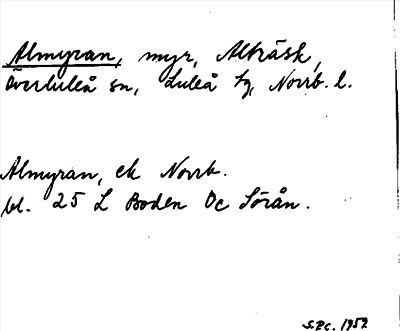 Almyran, myr, Alträsk,
Överluleå sn, Luleå tg, Norrb. l.
Almyran, ek Norrb.
bl. 25 L Boden Öc Sörån.
S.P.C. 1952